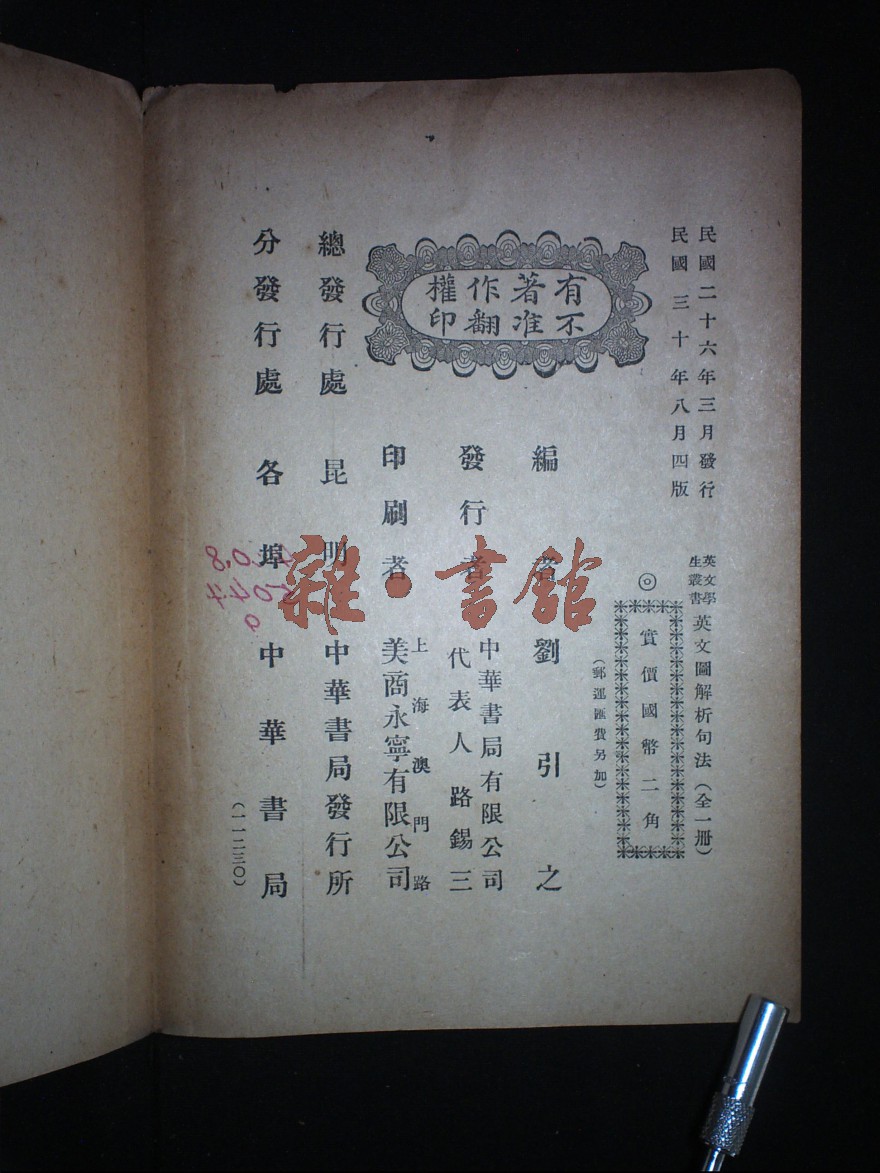 民國二十六年三月發行
民國三十年八月四版
英文學
生叢書
英文圖解析句法（全一册）
◎實價國幣二角
（郵運匯費另加）
有著作權
不准翻印
編者 劉引之
發行者 中華書局有限公司
代表人路錫三
印刷者 上海澳門路
美商永寧有限公司
總發行處 昆明 中華書局發行所
分發行處 各埠 中華書局
（一一二三〇）
雜·書館